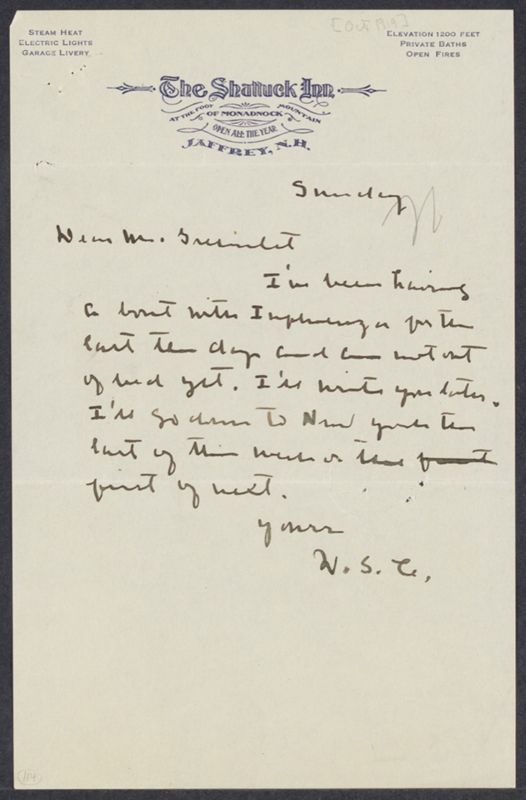 [Oct 1919]
STEAM HEAT
ELECTRIC LIGHTS
GARAGE LIVERY
ELEVATION 1200 FEET
PRIVATE BATHS
OPEN FIRES
The Shattuck Inn
AT THE FOOT OF MONADNOCK MOUNTAIN
OPEN ALL THE YEAR
JAFFREY, N.H.
Sunday
Dear Mr. Greenslet
I've been having
a bout with Influenza for the
last ten days and am not out
of bed yet. I'll write you later.
I'll go down to New York the
last of this week or the first
first of next.
Yours
W. S. C.